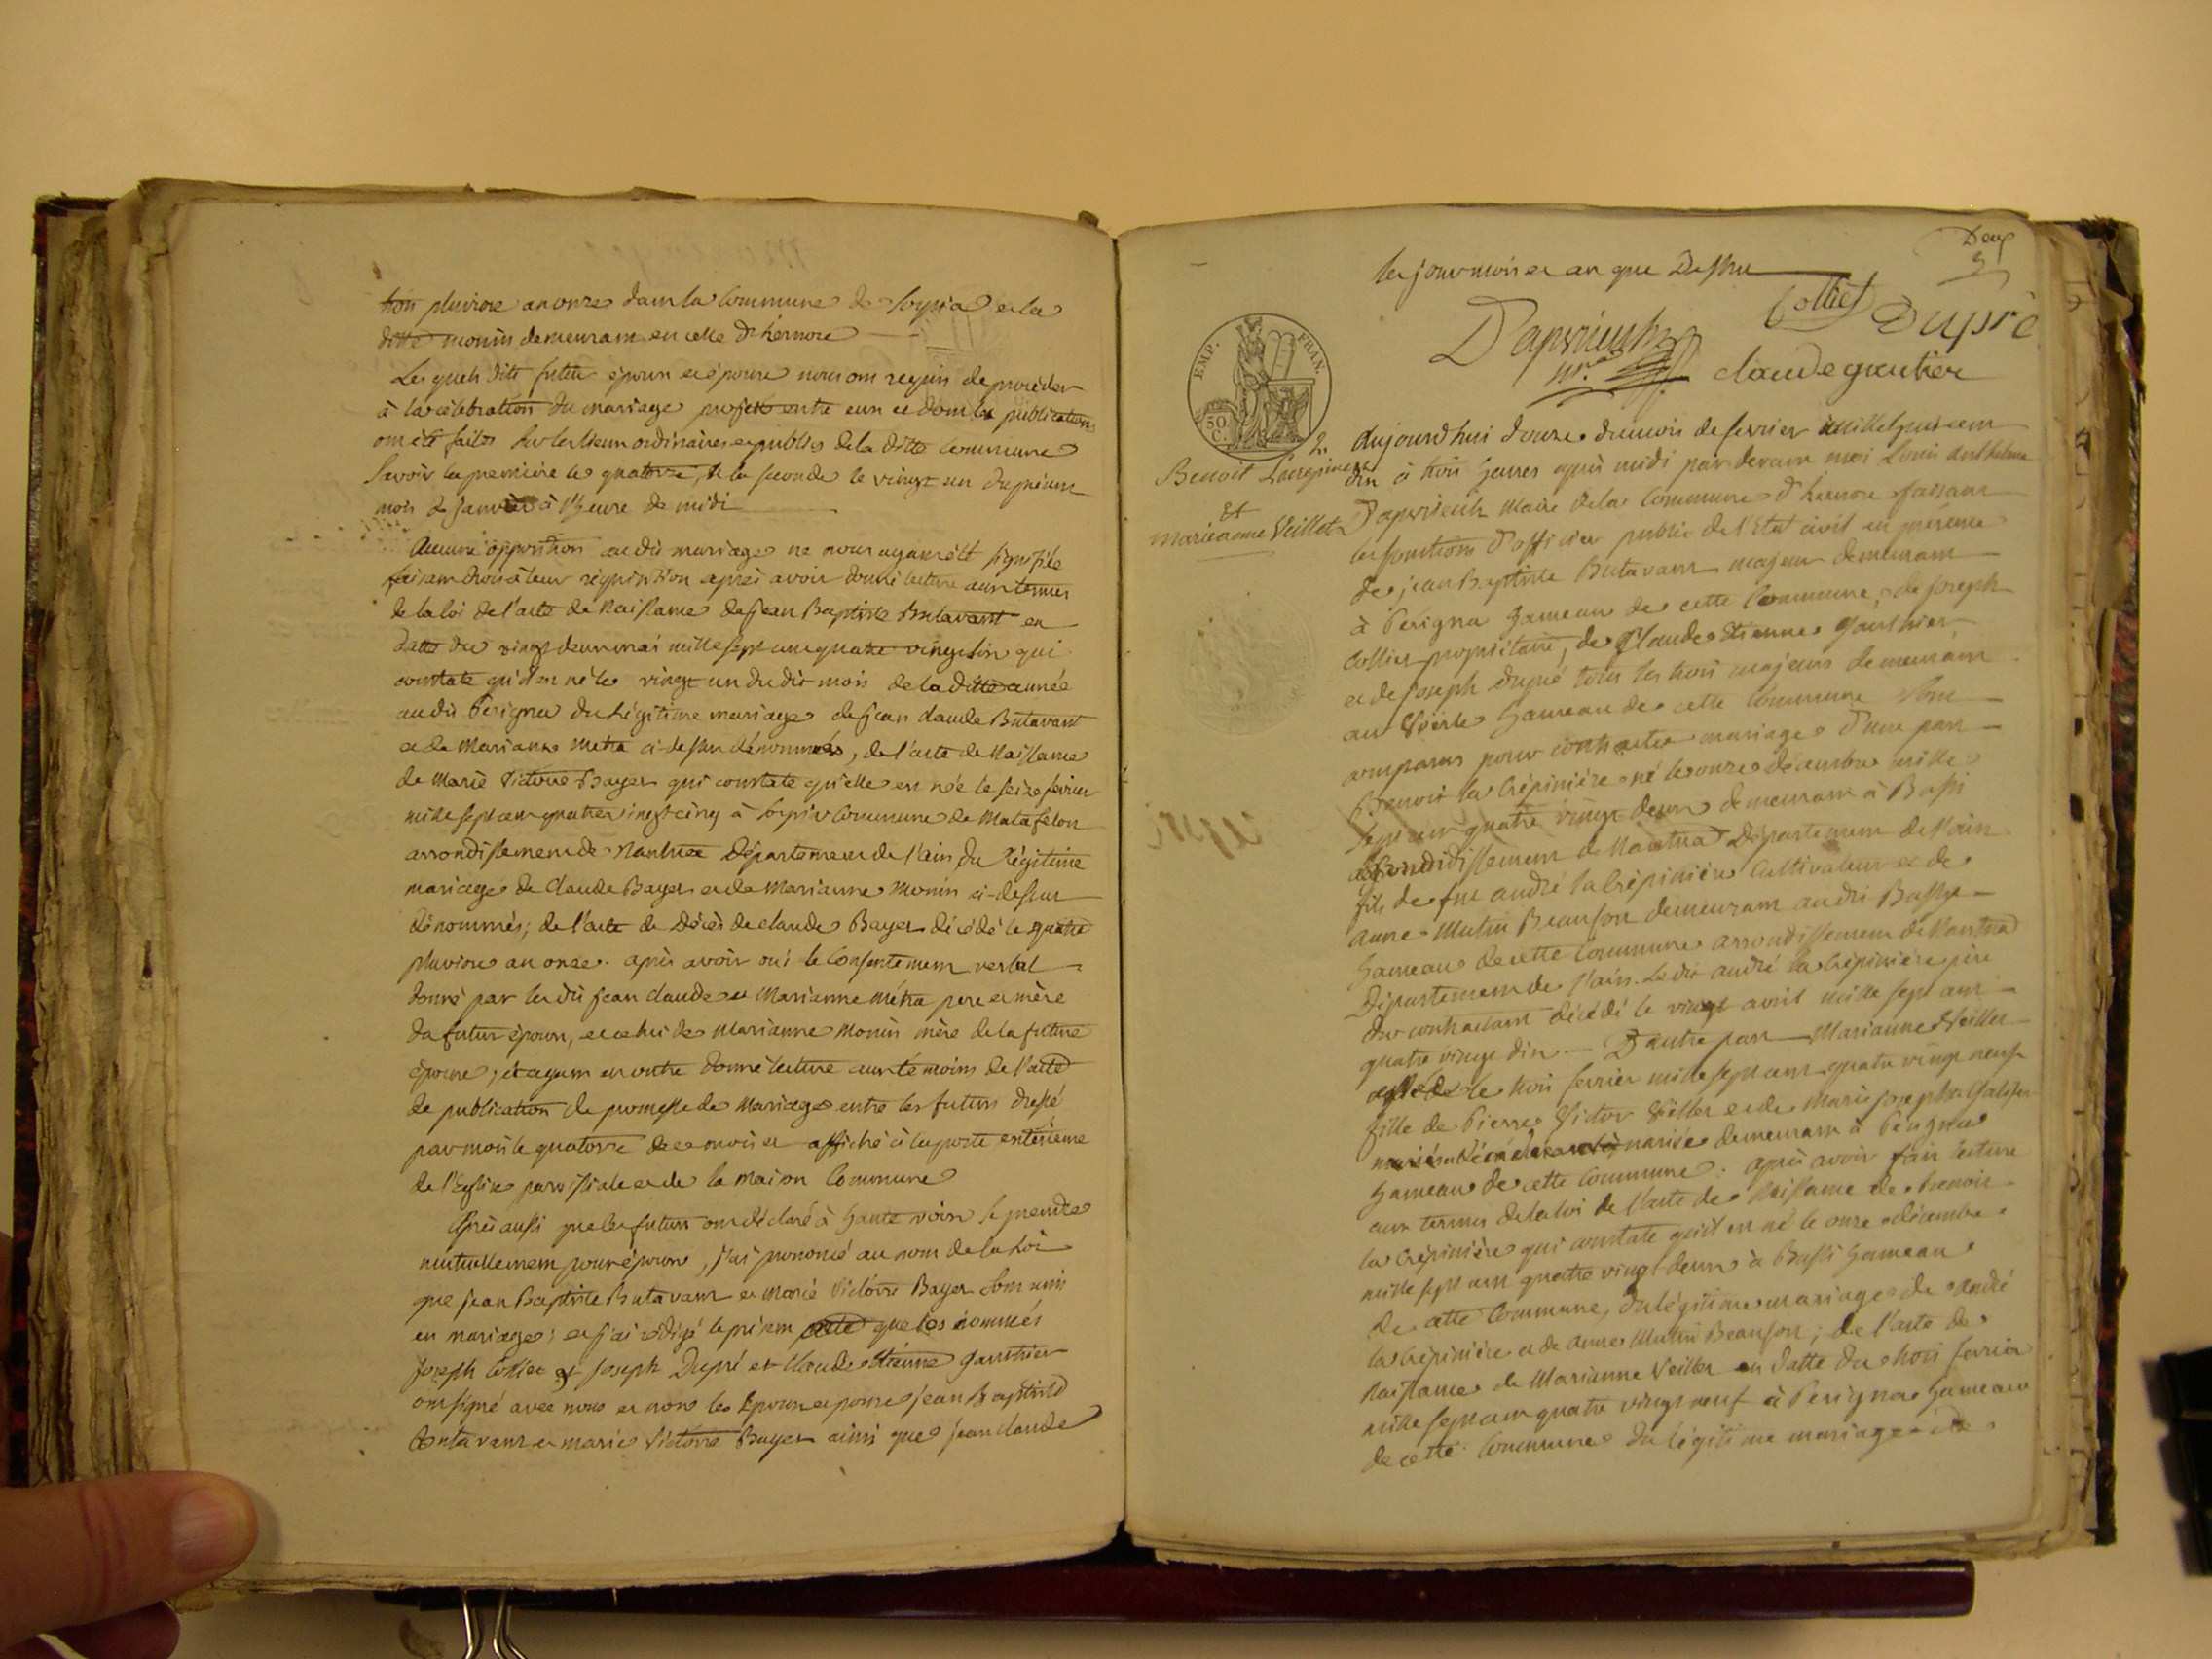 trois pluviose an onze dans la Commune de sorpia et la
ditte monin demeurant en celle d'hernore
Les quels dits futur époux et épouse nous ont requis de procéder
à la célébration du mariage projetté entre eux et dont les publications
ont été faites sur les lieux ordinaires et publics de la ditte Commune
Savoir la première le quatorze, & la seconde le vingt un du présent
mois de janvier à l'heure de midi
Aucune opposition au dit mariage ne nous ayant été signifiée
faisant droit à leur réquisition après avoir donné lecture aux termes
de la loi de l'acte de Naissance de Jean Baptiste Butavant en
datte du vingt deux mai mille sept cent quatre vingt six qui
constate qu'il est né le vingt un du dit mois de la ditte année
au dit Perigna du Légitime mariage de Jean claude Butavant
et de Marianne Metra ci-dessus dénommés, de l'acte de Naissance
de Marie Victoire Bayer qui constate qu'elle est née le seize fevrier
mille sept cent quatre vingt cinq à sorpia Commune de Matafelon
arrondissement de Nantua Département de l'ain du Légitime
mariage de Claude Bayer et de Marianne Monin ci-dessus
dénommés; de l'acte de Décès de claude Bayer décédé le quatre
pluviose an onze. après avoir oui le Consentement verbal
donné par les dit Jean claude et Marianne Métra pere et mère
du futur époux, et celui de Marianne Monin mère de la future
épouse, et ayant en outre donné lecture aux témoins de l'acte
de publication de promesse de Mariage entre les futurs dressé
par moi le quatorze de ce mois et affiché à la porte extérieure
de l'Eglise paroissiale et de la maison Commune
Après aussi que les futurs ont déclaré à haute voix se prendre
mutuellement pour époux, j'ai prononcé au nom de la Loi
que Jean Baptiste Butavant et Marie Victoire Bayer sont unis
en mariage; et j'ai rédigé le présent acte que les nommés
Joseph Collier et Joseph Dupré et Claude Etienne Gauthier
ont signé avec nous et non les Epoux et épouse Jean Baptiste
Butavant et marie Victoire Bayer ainsi que Jean claude
Deux
2
les jour mois et an que Dessus
Collier
Dupré
Dapvrieulx
claude gautier
EMP. FRAN.
50 C.
2.
Benoit Lacrepiniere
Et
marieanne Veillet
aujourd'hui douze du mois de fevrier mille huit cent
dix à trois heures après midi par devant moi Louis Anthelme
Dapvrieulx Maire de la Commune d'hernore faisant
les fonctions d'officier public de l'Etat civil en présence
de jean Baptiste Butavant majeur demeurant
à Perigna hameau de cette Commune, de Joseph
Collier propriétaire, de Claude Etienne Gauthier
et de Joseph dupré tous les trois majeurs demeurant
au hameau de cette Commune Sont
comparus pour contracter mariage d'une part
Benoit la Crépinière né le onze décembre mille
sept cent quatre vingt deux demeurant à Bassi
arrondissement de Nantua Département de l'ain
fils de feu andré la Crépinière Cultivateur et de
anne Mutin Beauson demeurant au dit Bassy
hameau de cette Commune arrondissement de Nantua
Département de l'ain. Le dit andré la Crépinière père
du contractant décédé le vingt avril mille sept cent
quatre vingt dix — D'autre part Marianne Veillet
le trois fevrier mille sept cent quatre vingt neuf
fille de Pierre Victor Veillet et de Marie Josephte
mariés demeurant à Perigna
hameau de cette Commune. après avoir fait lecture
aux termes de la loi de l'acte de Naissance de benoit
la Crépinière qui constate qu'il est né le onze décembre
mille sept cent quatre vingt deux à Bassi hameau
de cette Commune, du légitime mariage de André
la Crépinière et de anne Mutin Beauson; de l'acte de
Naissance de Marianne Veillet en datte du trois fevrier
mille sept cent quatre vingt neuf à Perigna hameau
de cette Commune du légitime mariage de